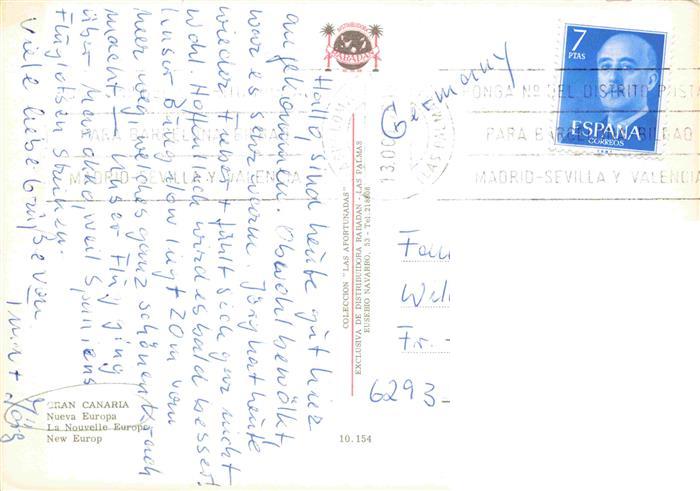 Hallo, sind heute gut hier
angekommen. Obwohl bewölkt
war es sehr warm. Jörg hat heute
wieder Fieber + fühlt sich gar nicht
wohl. Hoffentlich wird es bald besser.
Unser Bungalow liegt 20 m vom
Meer weg, welches ganz schönen Krach
macht. Unser Flug ging
über Menge, weil Spaniens
Fluglotsen streiken.
Viele liebe Grüße von
+ Jörg
GRAN CANARIA
Nueva Europa
La Nouvelle Europe
New Europ
DISTRIBUIDORA
RABADAN
COLECCION "LAS AFORTUNADAS"
EXCLUSIVA DE DISTRIBUIDORA RABADAN - LAS PALMAS
EUSEBIO NAVARRO, 53 - Tel. 218608
10.154
Germany
7
PTAS
ESPAÑA
CORREOS
PONGA Nº DEL DISTRITO POSTA
PARA BARCELONA BILBAO
MADRID-SEVILLA Y VALENCIA
LAS PALMAS
13.OC
PARA BARCELONA BILBAO
MADRID-SEVILLA Y VALENCIA
Fam
Wil
Fr.-
6293-